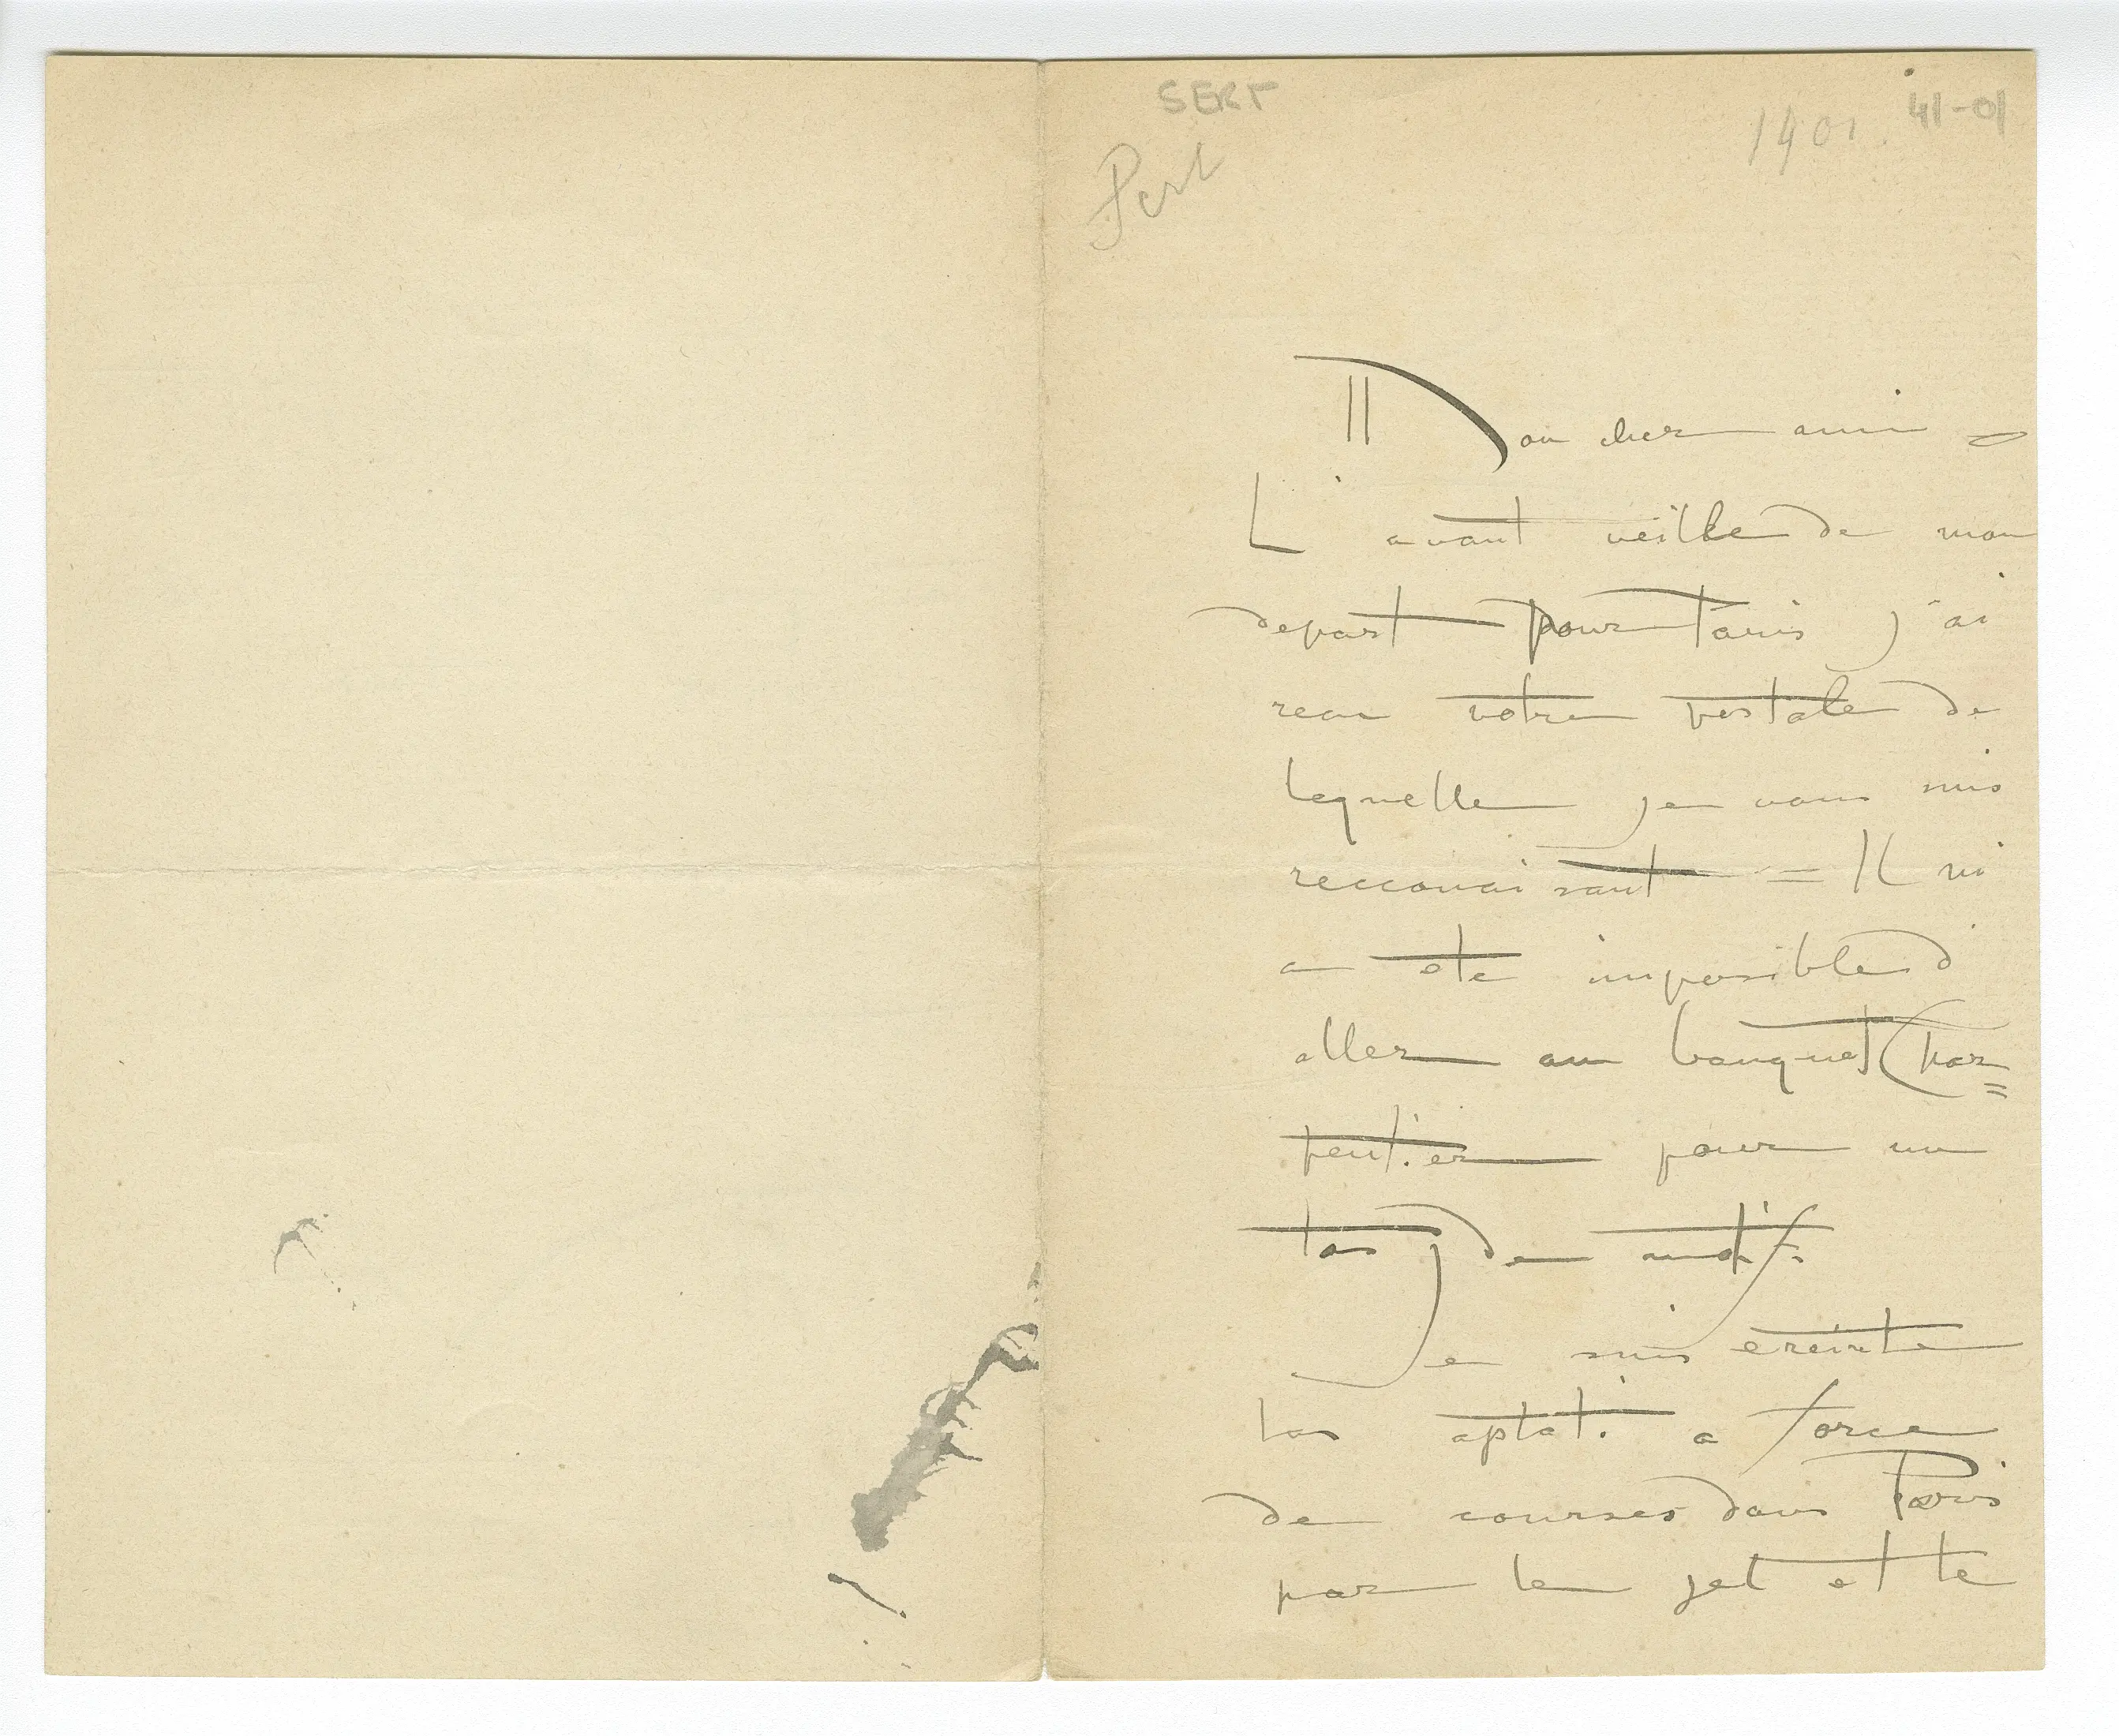 SERT
1901
41-01
Mon cher ami
L'avant veille de mon
depart pour Paris j'ai
recu votre postale de
laquelle je vous suis
recconaisant = Il m'
a ete imposible d'
aller au banquet Char=
pentier pour un
tas de motifs.
Je suis ereinte
a force
de courses dans Paris
par le jel et le